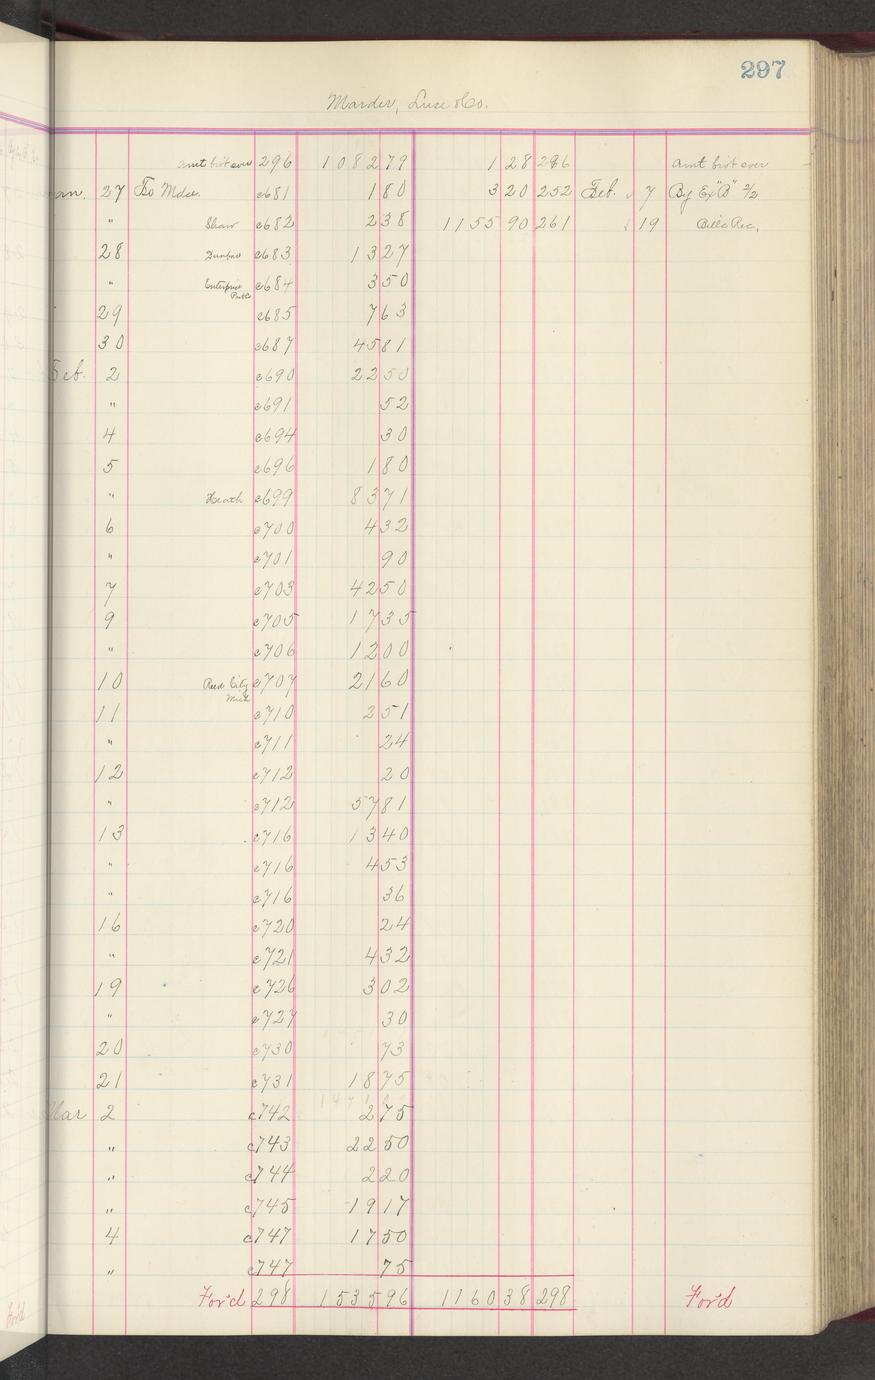 297
Marder, Luse & Co.
amt bro't over 296 1082 79 1 28 296 Amt bro't over
an. 27 To Mdse. c681 1 80 3 20 252 Feb. 7 By Ex "B" 2/2
" Shaw c682 2 38 1155 90 261 19 Bills Rec.
28 Dunbar c683 13 27
" Enterprise c684 3 50
29 c685 7 63
30 c687 45 81
Feb. 2 c690 22 50
" c691 52
4 c694 30
5 c696 1 80
" Heath c699 83 71
6 c700 4 32
" c701 90
7 c703 42 50
9 c705 17 35
" c706 12 00
10 Reed City Mich c707 21 60
11 c710 2 51
" c711 24
12 c712 20
" c712 57 81
13 c716 13 40
" c716 4 53
" c716 36
16 c720 24
" c721 4 32
19 c726 3 02
" c727 30
20 c730 73
21 c731 18 75
Mar 2 c742 2 75
" c743 22 50
" c744 2 20
" c745 19 17
4 c747 17 50
" c747 75
For'd 298 1535 96 1160 38 298 For'd